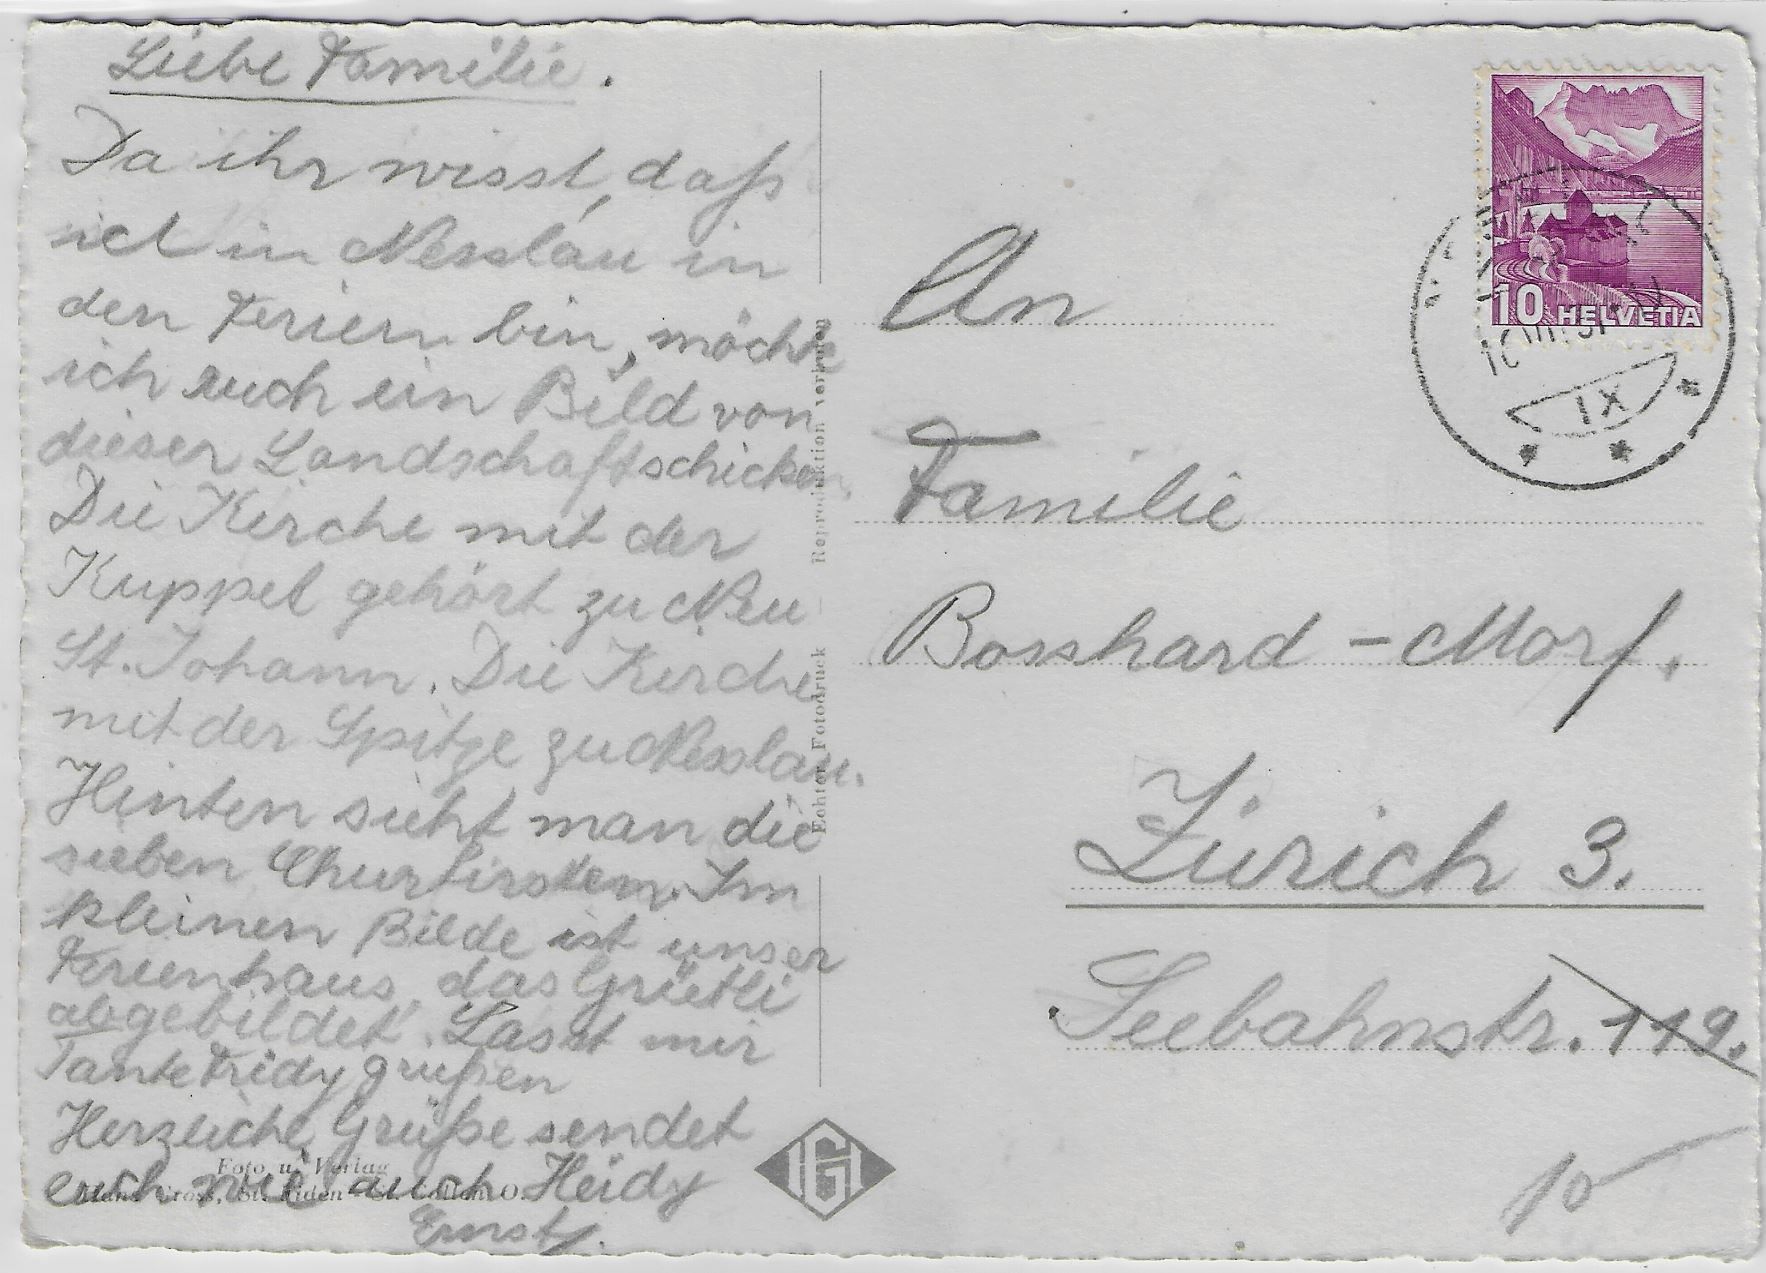 Liebe Familie.
Da ihr wisst, daß
ich in Nesslau in
den Ferien bin, möchte
ich euch ein Bild von
dieser Landschaft schicken.
Die Kirche mit der
Kuppel gehört zu Neu
St. Johann. Die Kirche
mit der Spitze zu Nesslau.
Hinten sieht man die
sieben Churfirsten. Im
kleinen Bilde ist unser
Ferienhaus, das Grüetli
abgebildet. Lasst mir
Tante Fridy grüßen
Herzliche Grüße sendet
euch wie auch Heidy
Ernst.
Foto u. Verlag
Hans Gross, St. Fiden - St. Gallen O.
Echter Fotodruck – Reproduktion verboten
HG
An
Familie
Bosshard - Morf.
Zürich 3.
Seebahnstr. 119.
10
10 HELVETIA
IX